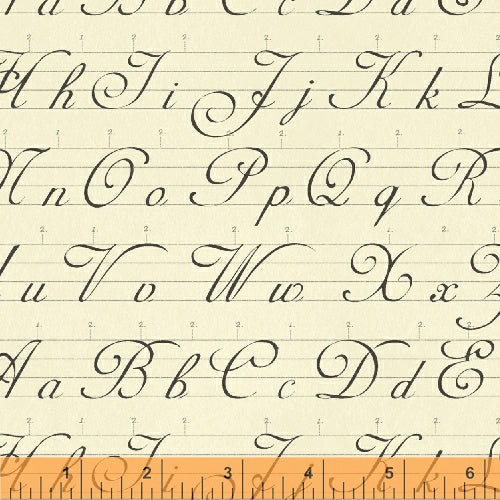 a B b C c D d E
H h I i J j K k L
N n O o P p Q q R
u V v W w X x Z
A a B b C c D d E
H h I i J j K k L
1 2 3 4 5 6